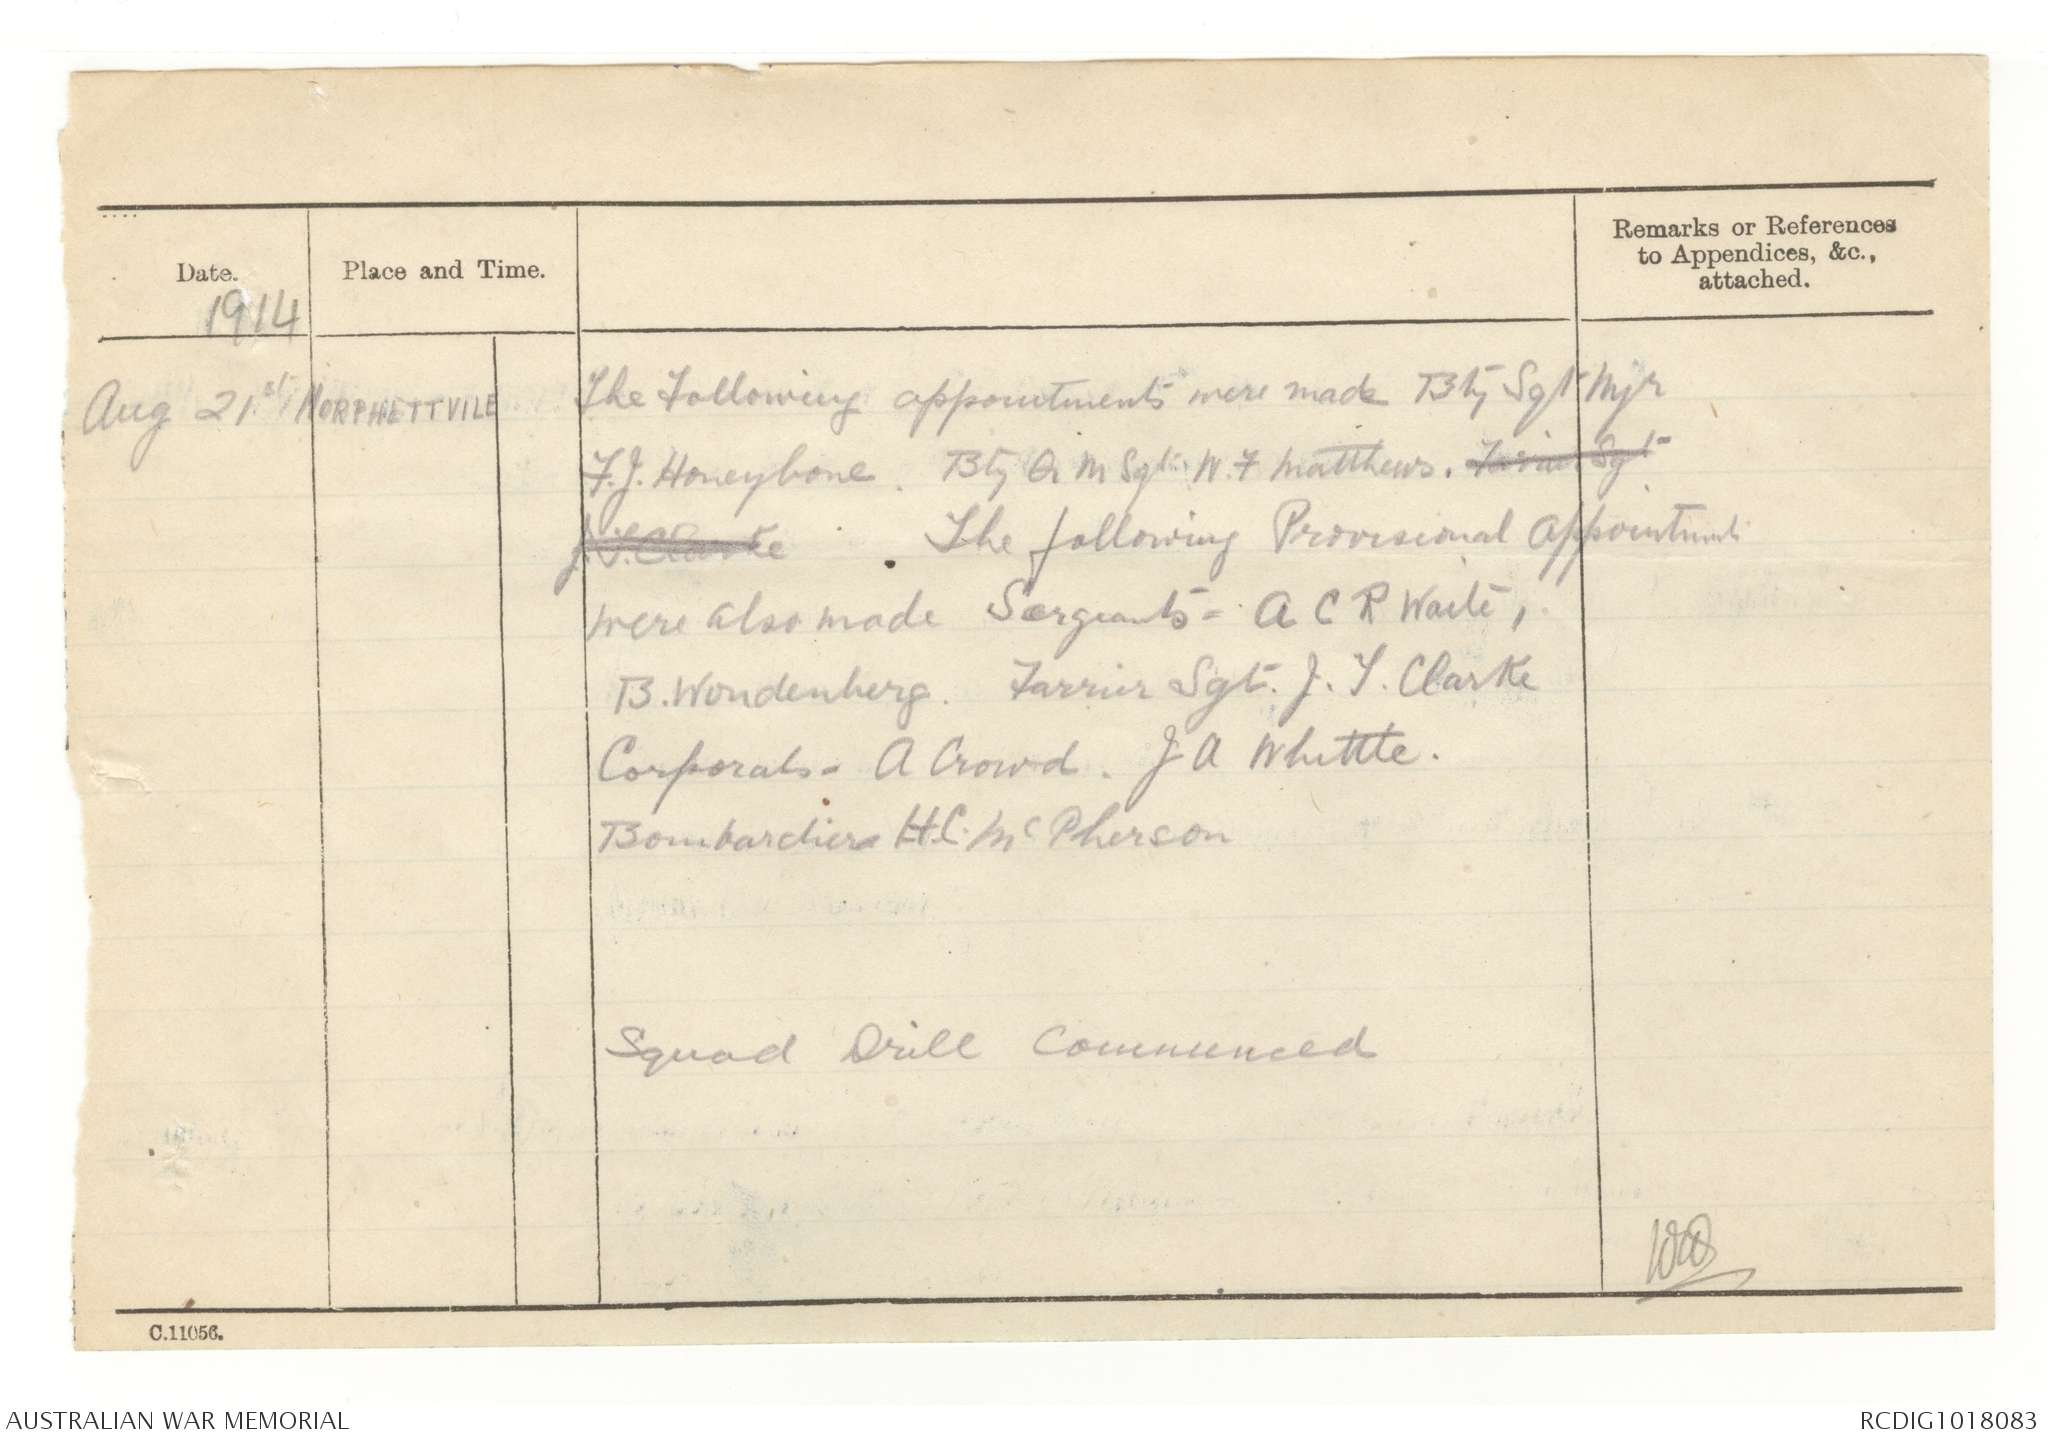 Date.
1914
Place and Time.
Remarks or References
to Appendices, &c.,
attached.
Aug 21st MORPHETTVILE
The Following appointments were made Bty Sgt Mjr
F.J. Honeybone. Bty Q M Sgt W. F Matthews. Farrier Sgt
J.T. Clarke . The following Provisional Appointments
were also made Sergeants - A C R Waite,
B. Wondenberg. Farrier Sgt. J. T. Clarke
Corporals - A Crowd. J A Whittle.
Bombardier H.C. McPherson
Squad Drill Commenced
C.11056.
AUSTRALIAN WAR MEMORIAL
RCDIG1018083